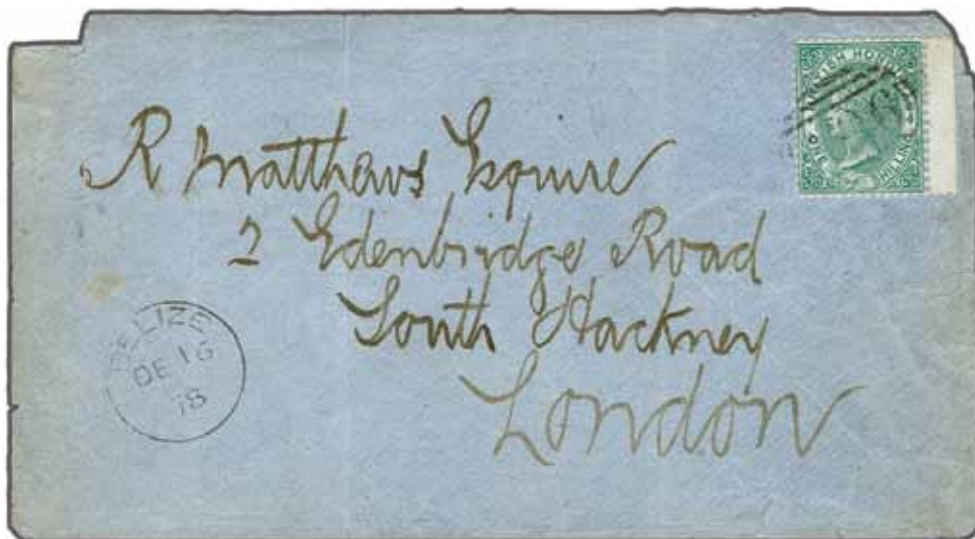 BRITISH HONDURAS
ONE SHILLING
R Matthews Esquire
2 Edenbridge Road
South Hackney
London
BELIZE
DE 16
78